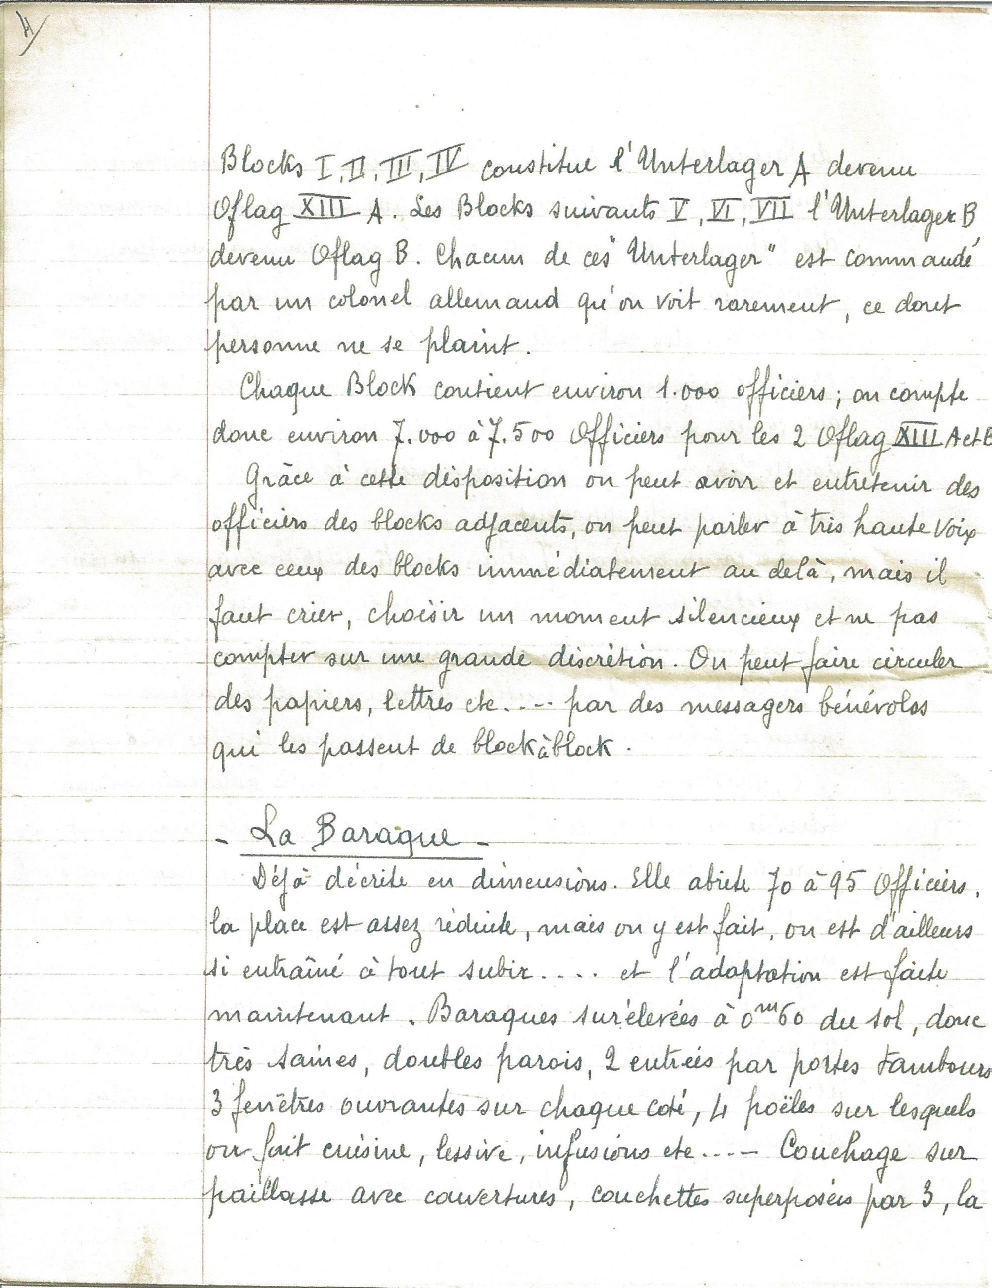 4/
Blocks I, II, III, IV constitue l'Unterlager A devenu
Oflag XIII A. Les Blocks suivants V, VI, VII l'Unterlager B
devenu Oflag B. Chacun de ces "Unterlager" est commandé
par un colonel allemand qu'on voit rarement, ce dont
personne ne se plaint.
Chaque Block contient environ 1.000 officiers ; on compte
donc environ 7.000 à 7.500 Officiers pour les 2 Oflag XIII A et B
Grâce à cette disposition on peut avoir et entretenir des
officiers des blocks adjacents, on peut parler à très haute voix
avec ceux des blocks immédiatement au delà, mais il
faut crier, choisir un moment silencieux et ne pas
compter sur une grande discrétion. On peut faire circuler
des papiers, lettres etc.... par des messagers bénévoles
qui les passent de block à block.
- La Baraque -
Déjà décrite en dimensions. Elle abrite 70 à 95 Officiers,
la place est assez réduite, mais on y est fait, on est d'ailleurs
si entraîné à tout subir.... et l'adaptation est faite
maintenant. Baraques surélevées à 0m60 du sol, donc
très saines, doubles parois, 2 entrées par portes tambours
3 fenêtres ouvrantes sur chaque coté, 4 poëles sur lesquels
on fait cuisine, lessive, infusions etc.... Couchage sur
paillasse avec couvertures, couchettes superposées par 3, la